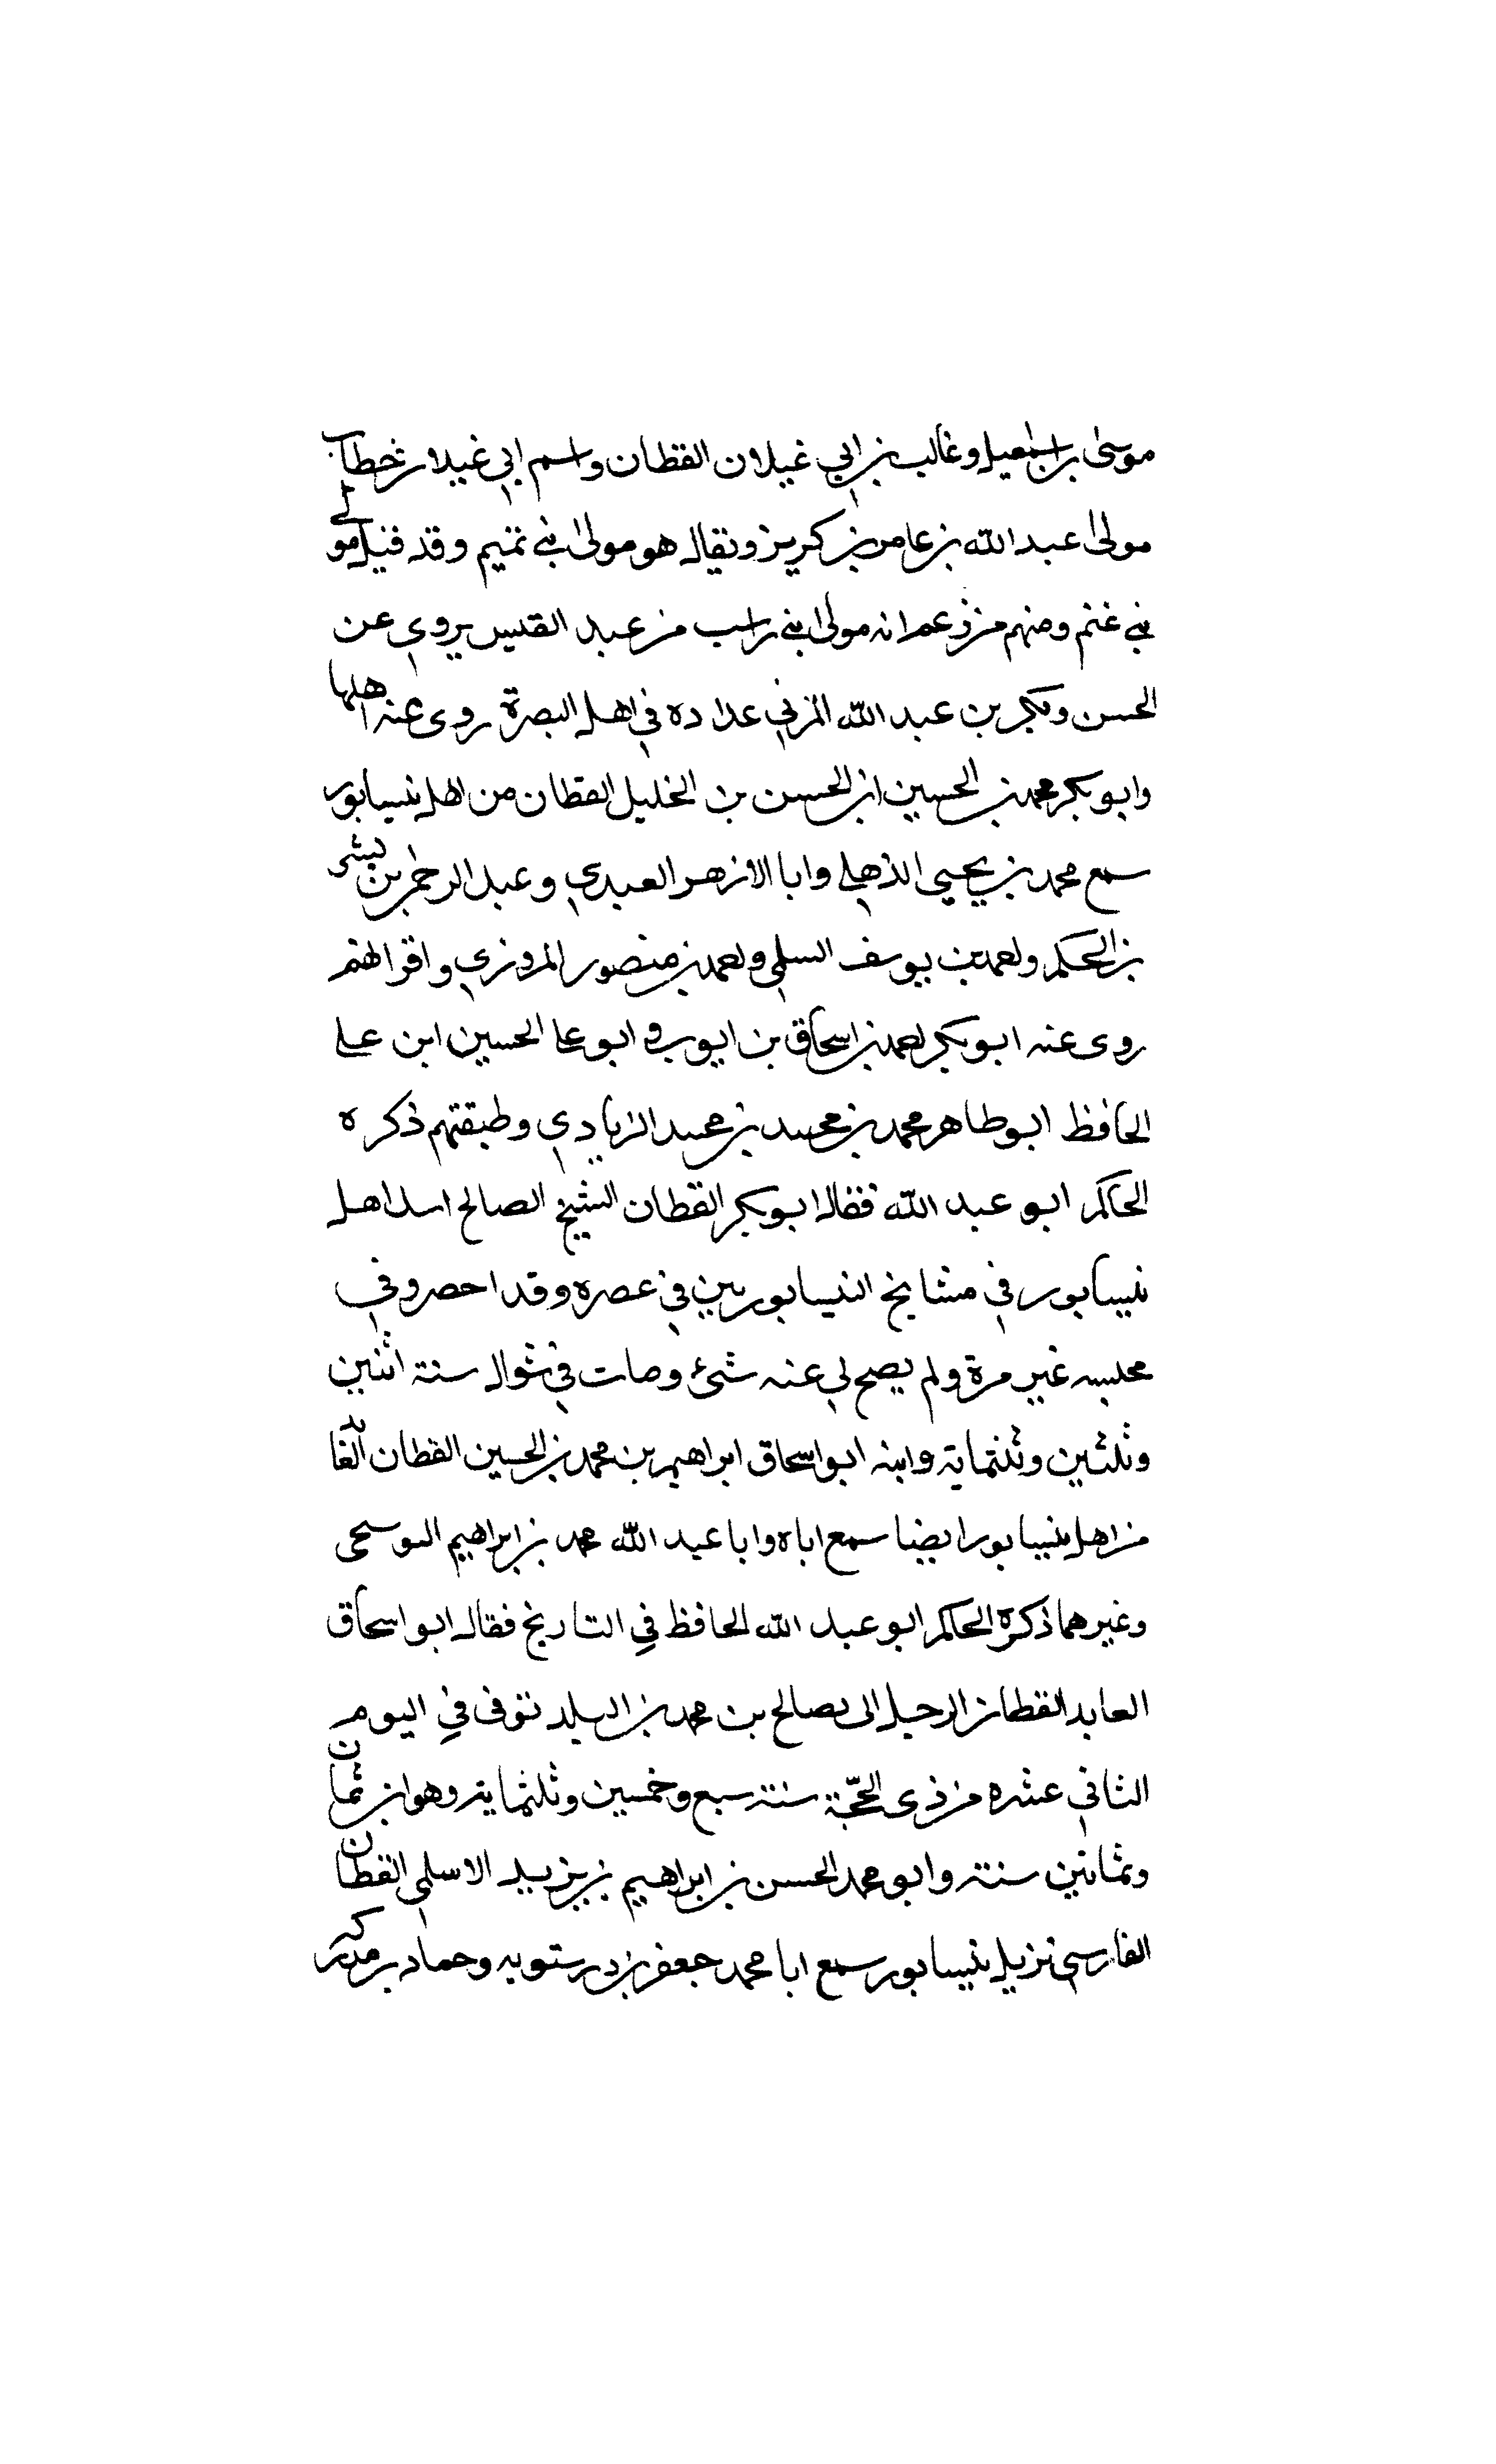 موسى بن اسمعيل وغالب بن ابي غيلان القطان واسم ابي غيلان خطاب
مولى عبد الله بن عامر بن كريز ويقال هو مولى بني تميم وقد قيل مولى
بني غنم ومنهم من زعم انه مولى بني راسب من عبد القيس يروي عن
الحسن وبكر بن عبد الله المزني عداده في اهل البصرة روى عنه اهلها
وابو بكر محمد بن الحسين ابن الحسن بن الخليل القطان من اهل نيسابور
سمع محمد بن يحيى الذهلي وابا الازهر العبدي وعبد الرحمن بن بشر
بن الحكم واحمد بن يوسف السلمي واحمد بن منصور المروزي واقرانهم
روى عنه ابو بكر احمد بن اسحاق بن ايوب وابو عا الحسين ابن علي
الحافظ ابو طاهر محمد بن محمد بن محمد الزيادي وطبقتهم ذكره
الحاكم ابو عبد الله فقال ابو بكر القطان الشيخ الصالح اسد اهل
نيسابور في مشايخ النيسابوريين في عصره وقد احضروني
مجلسه غير مرة ولم يصح لي عنه شئ ومات في شوال سنة اثنين
وثلثين وثلثماية وابنه ابو اسحاق ابراهيم بن محمد بن الحسين القطان
من اهل نيسابور ايضا سمع اباه وابا عبد الله محمد بن ابراهيم البوسنجي
وغيرهما ذكره الحاكم ابو عبد الله الحافظ في التاريخ فقال ابو اسحاق
العابد القطان الرجل الصالح بن محمد بن البلد توفى في اليوم
الثاني عشره من ذى الحجّة سنة سبع وخمسين وثلثماية وهو ابن ثمان
وثمانين سنة وابو محمد الحسن بن ابراهيم بن يزيد الاسلمي القطان
الفارسي نزيل نيسابور سمع ابا محمد جعفر بن درستويه وحماد بن مدرك